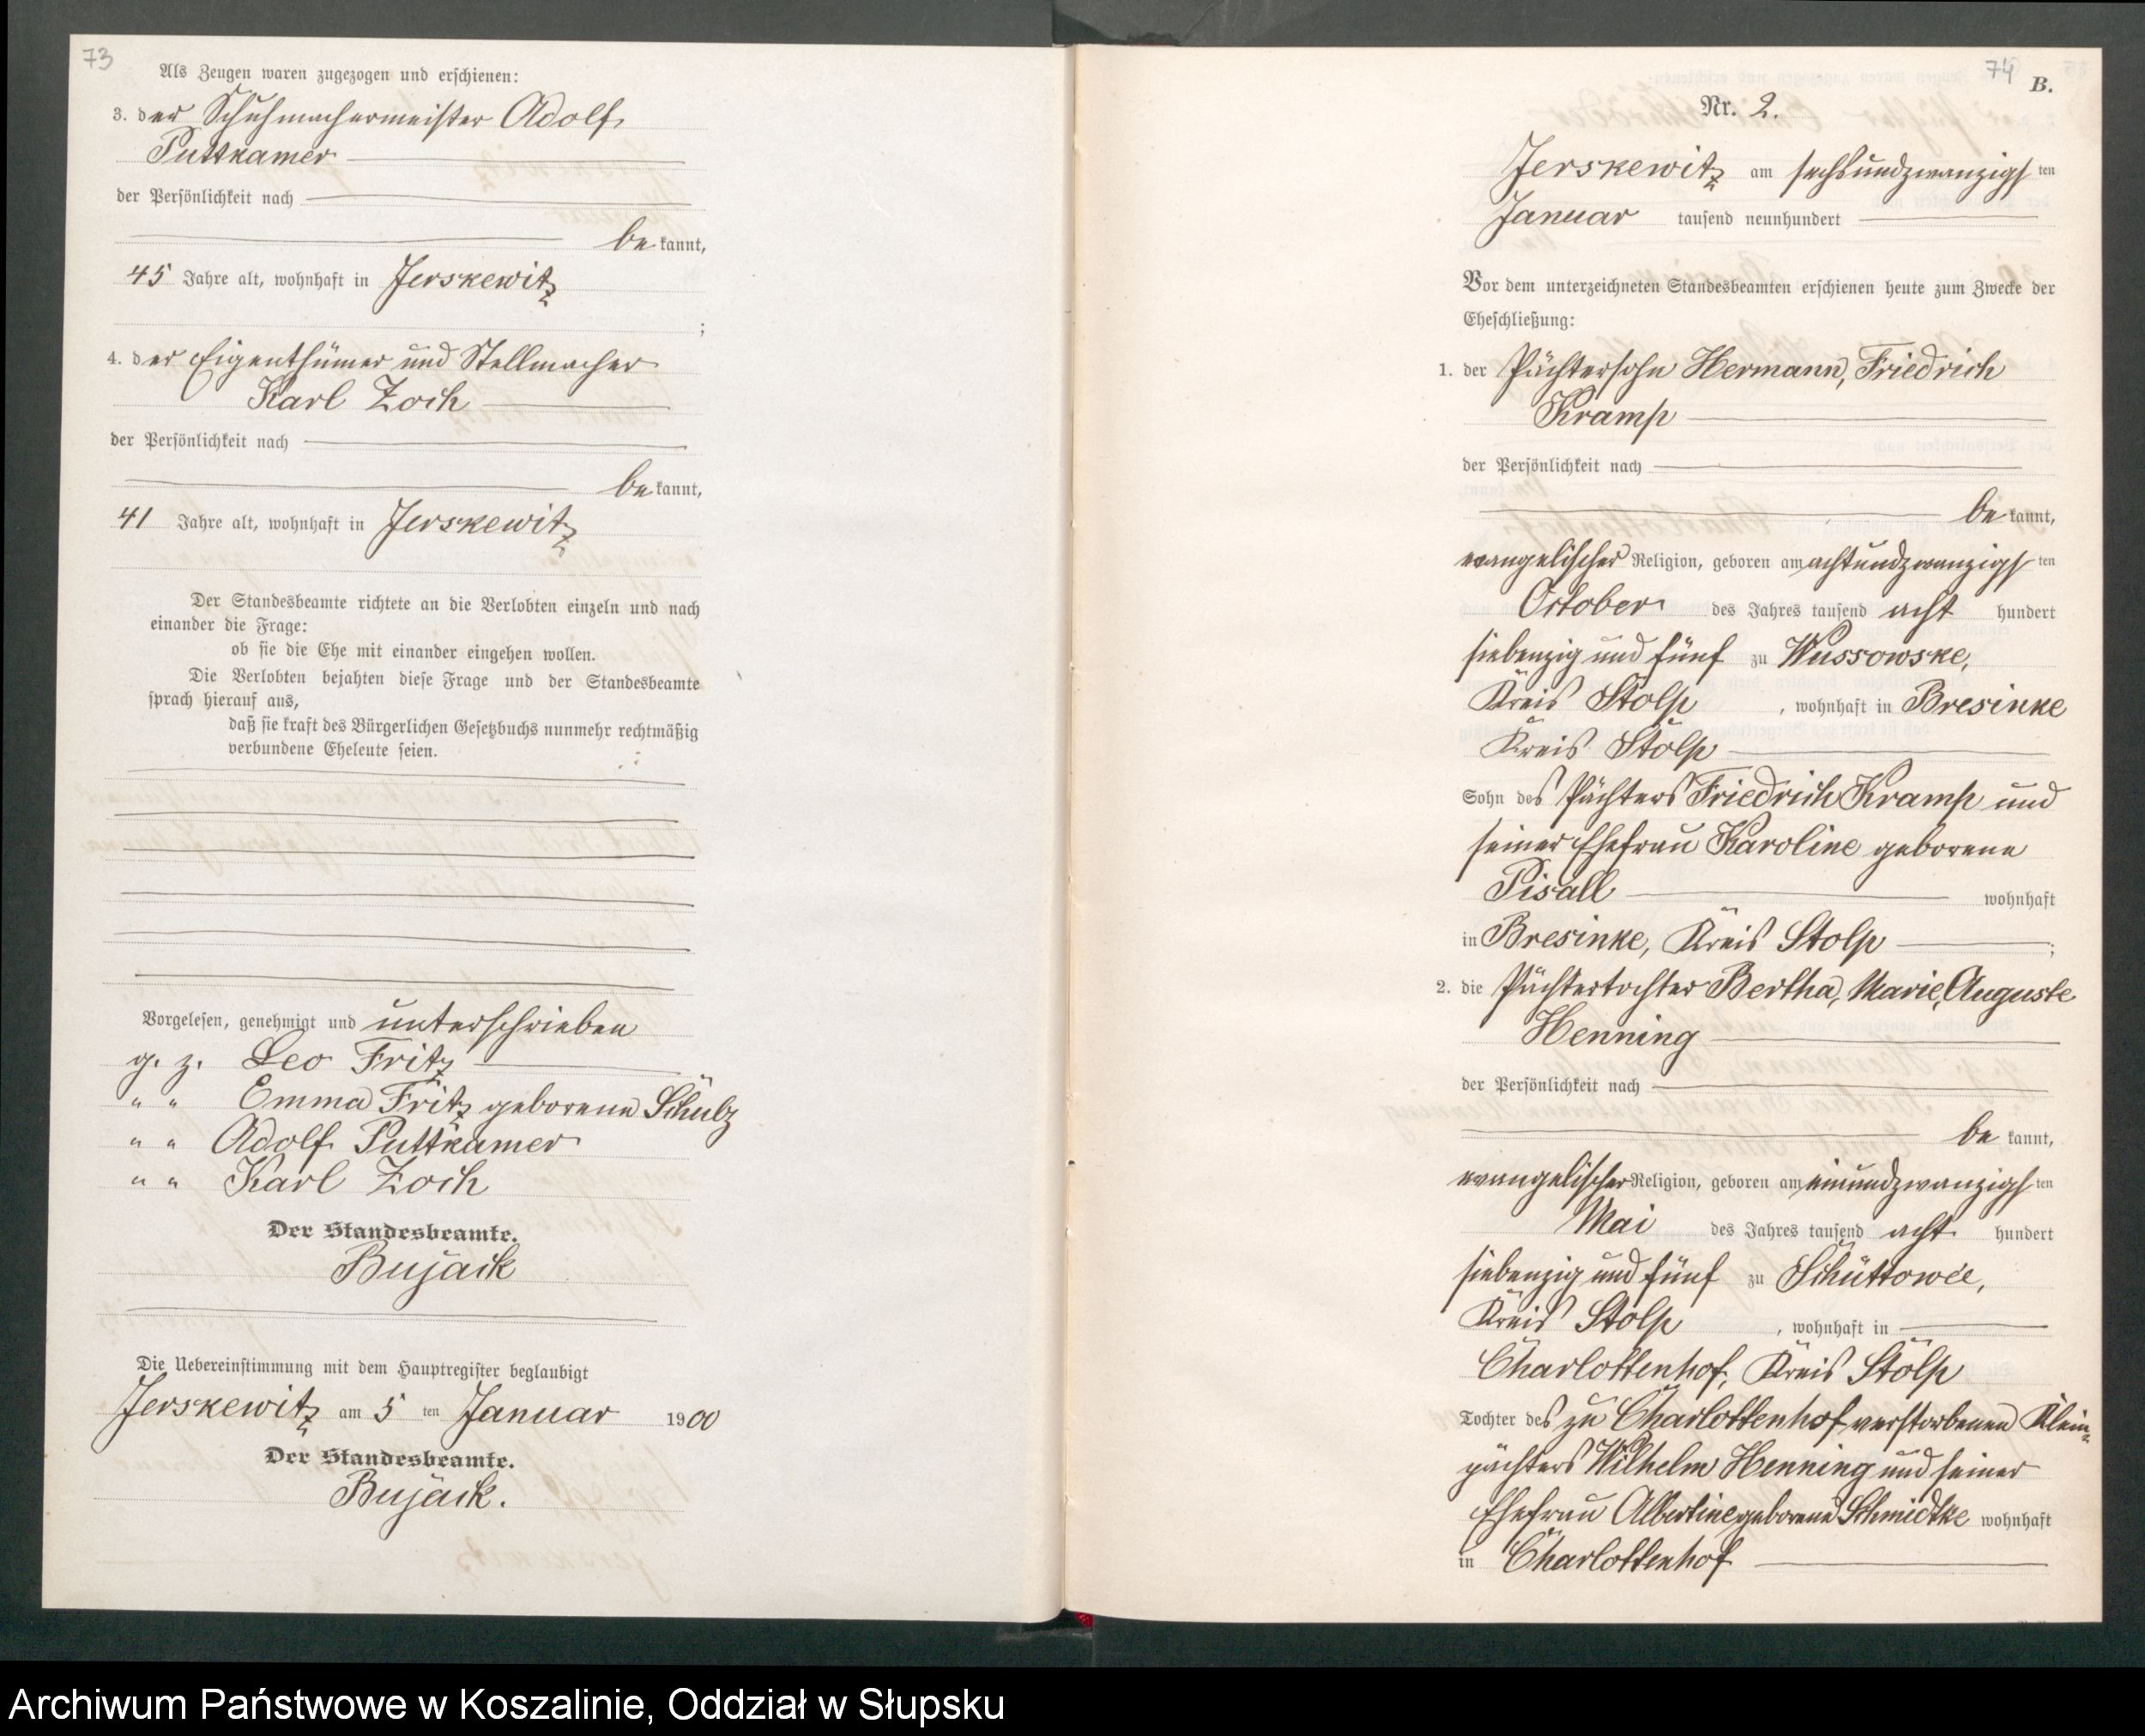 73
Als Zeugen waren zugezogen und erschienen:
3. der Schuhmachermeister Adolf
Puttkamer
der Persönlichkeit nach
be kannt,
45 Jahre alt, wohnhaft in Jerskewitz
;
4. der Eigenthümer und Stellmacher
Karl Zoch
der Persönlichkeit nach
be kannt,
41 Jahre alt, wohnhaft in Jerskewitz
Der Standesbeamte richtete an die Verlobten einzeln und nach
einander die Frage:
ob sie die Ehe mit einander eingehen wollen.
Die Verlobten bejahten diese Frage und der Standesbeamte
sprach hierauf aus,
daß sie kraft des Bürgerlichen Gesetzbuchs nunmehr rechtmäßig
verbundene Eheleute seien.
Vorgelesen, genehmigt und unterschrieben
g. z. Leo Fritz
" " Emma Fritz geborene Schulz
" " Adolf Puttkamer
" " Karl Zoch
Der Standesbeamte.
Bujack
Die Uebereinstimmung mit dem Hauptregister beglaubigt
Jerskewitz am 5 ten Januar 1900
Der Standesbeamte.
Bujack.
74
B.
Nr. 2.
Jerskewitz am sechsundzwanzigs ten
Januar tausend neunhundert
Vor dem unterzeichneten Standesbeamten erschienen heute zum Zwecke der
Eheschließung:
1. der Pächtersohn Hermann, Friedrich
Kramp
der Persönlichkeit nach
be kannt,
evangelischer Religion, geboren am achtundzwanzigs ten
October des Jahres tausend acht hundert
siebenzig und fünf zu Wussowske,
Kreis Stolp , wohnhaft in Bresinke
Kreis Stolp
Sohn des Pächters Friedrich Kramp und
seiner Ehefrau Karoline geborene
Pisall wohnhaft
in Bresinke, Kreis Stolp ;
2. die Pächtertochter Bertha, Marie, Auguste
Henning
der Persönlichkeit nach
be kannt,
evangelischer Religion, geboren am einundzwanzigs ten
Mai des Jahres tausend acht hundert
siebenzig und fünf zu Schüttowce,
Kreis Stolp , wohnhaft in
Charlottenhof, Kreis Stolp
Tochter des zu Charlottenhof verstorbenen Klein-
pächters Wilhelm Henning und seiner
Ehefrau Albertine geborene Schmidtke wohnhaft
in Charlottenhof
Archiwum Państwowe w Koszalinie, Oddział w Słupsku